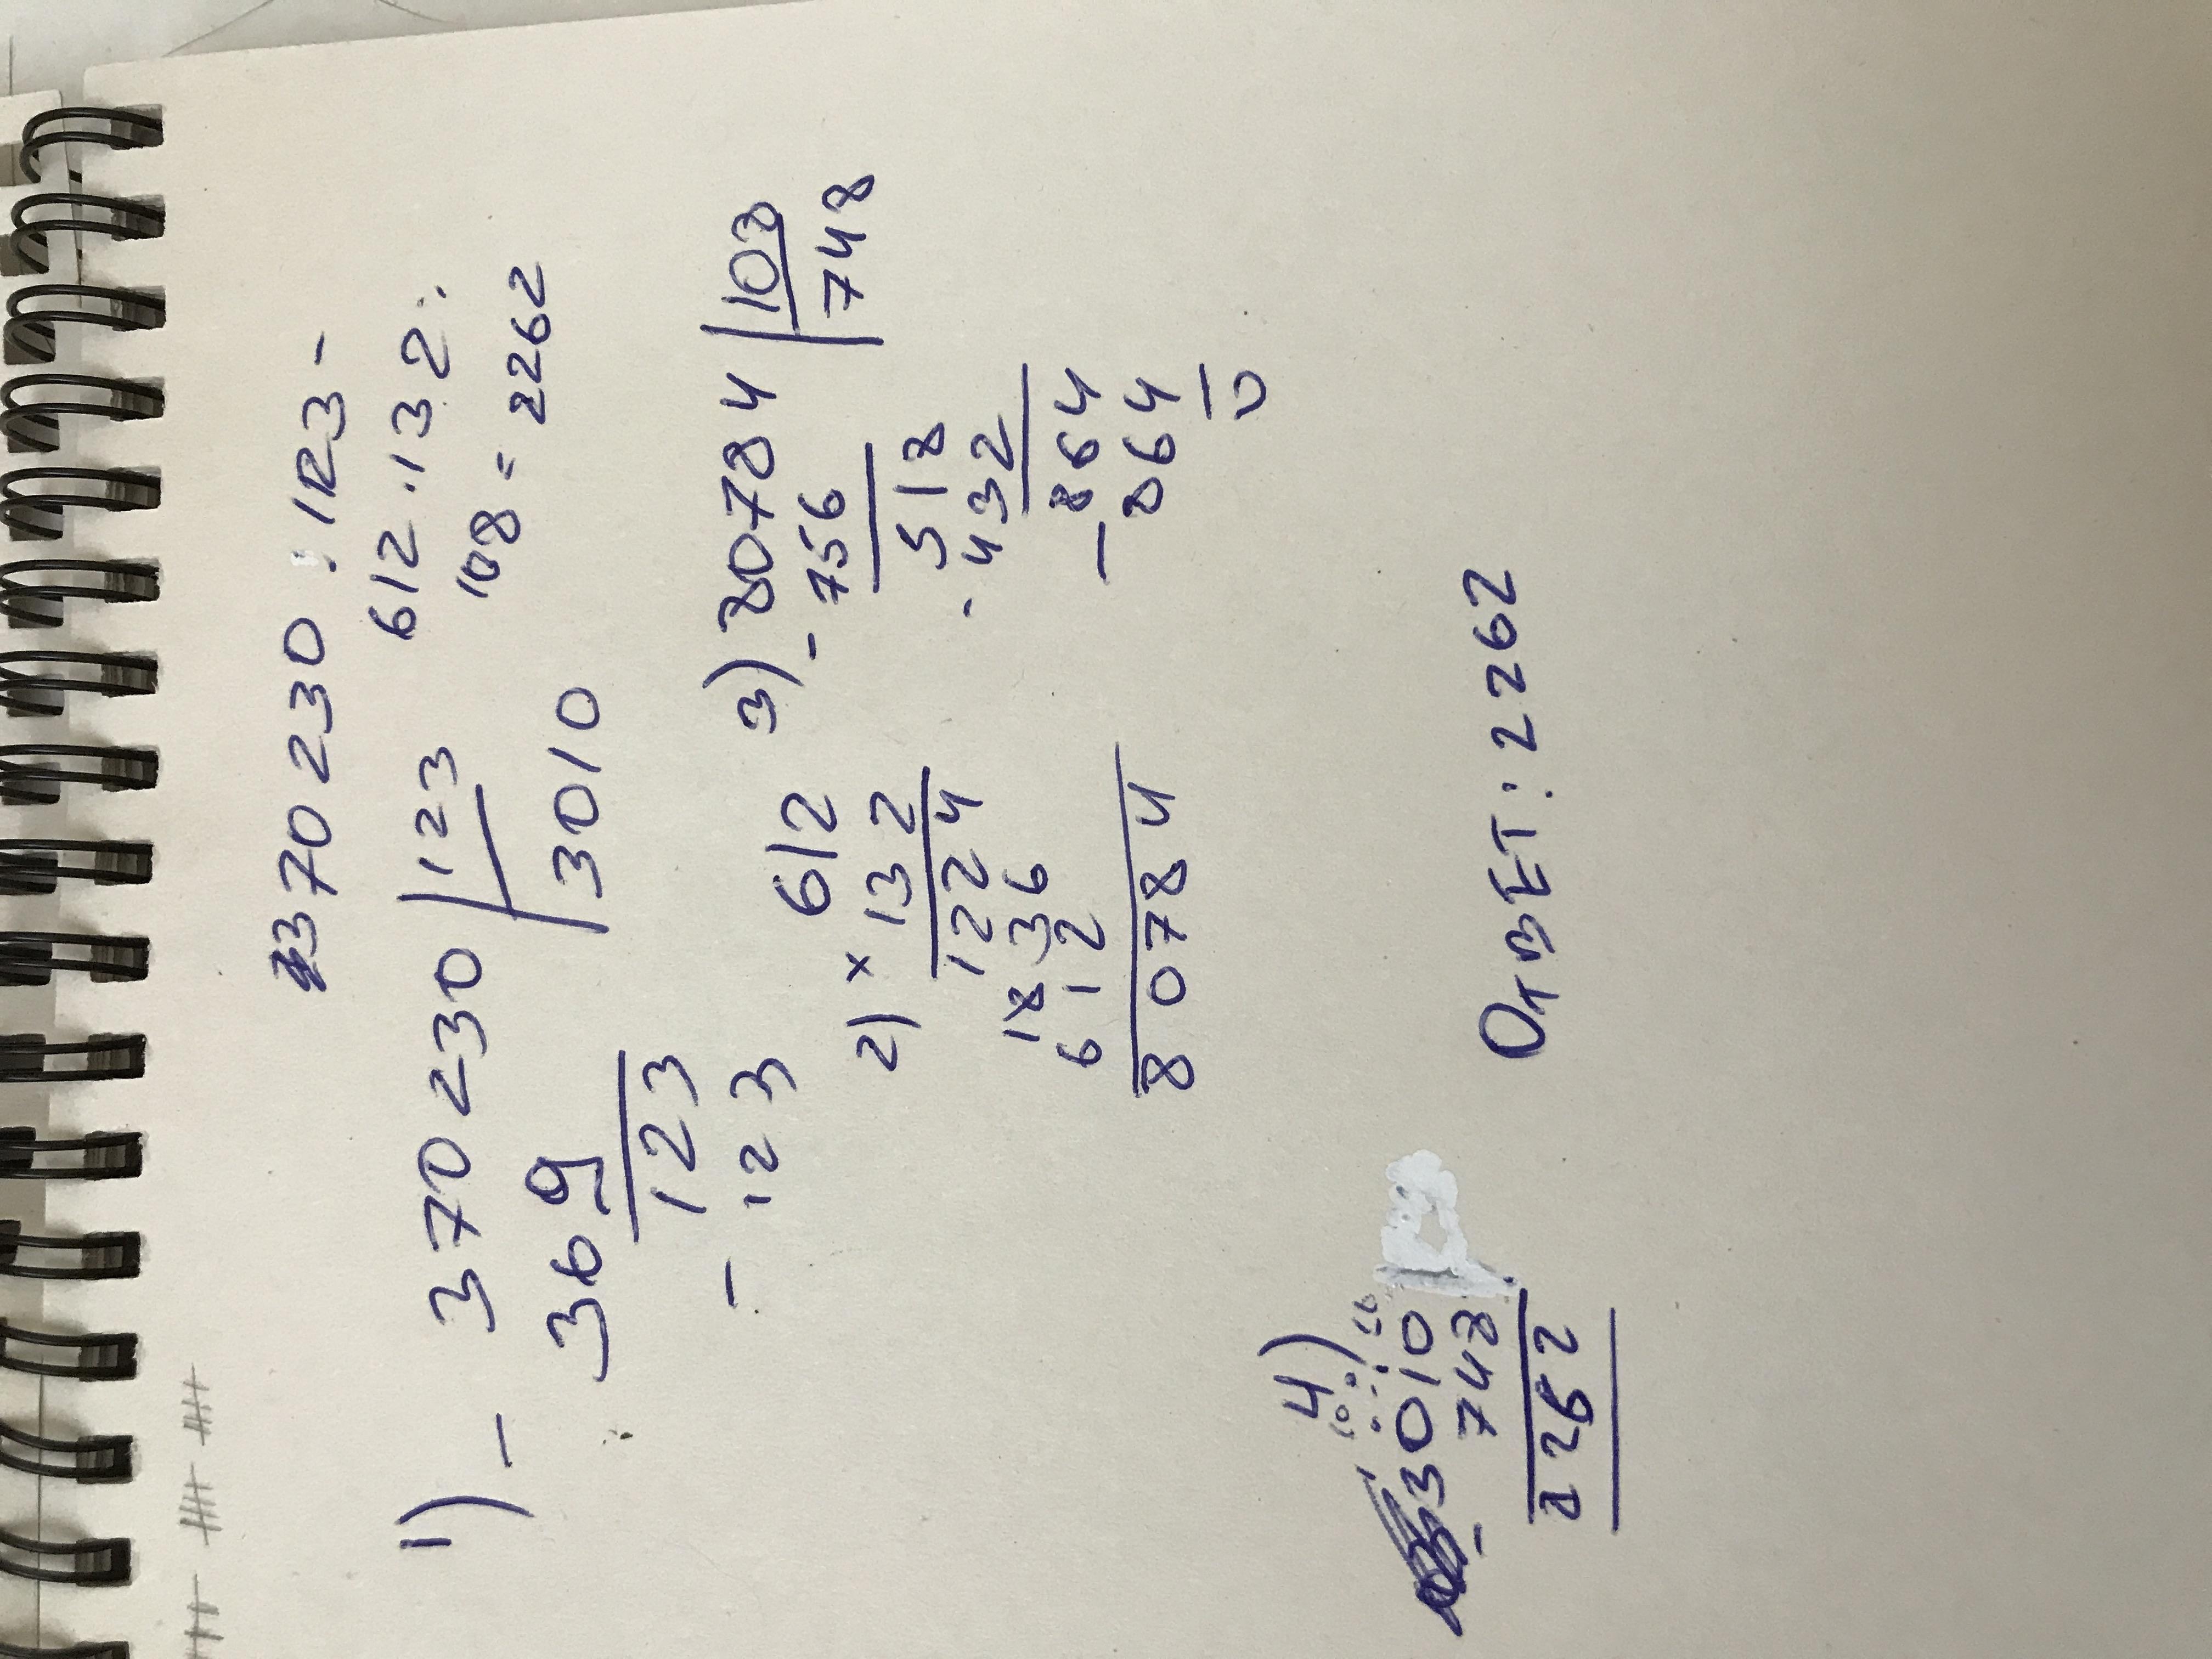 370230 : 123 -
612 · 132 :
108 = 2262
1) - 370230 | 123
369 | 3010
123
- 123
2) × 612
132
1224
1836
612
80784
3) - 80784 | 108
756 | 748
518
- 432
- 864
864
0
4)
10 10
- 3010
748
2262
Ответ: 2262